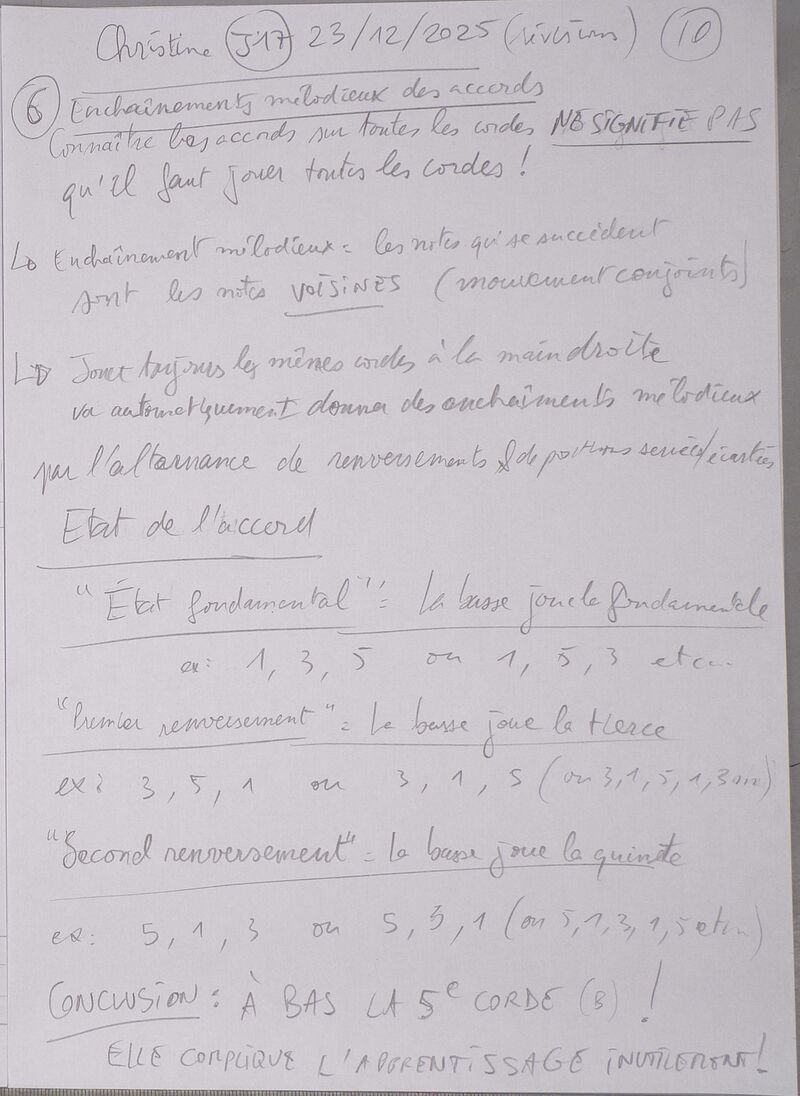 Christine J17 23/12/2025 (révisions) 10
6 Enchaînements mélodieux des accords
Connaître les accords sur toutes les cordes NE SIGNIFIE PAS
qu'il faut jouer toutes les cordes !
Enchaînement mélodieux = les notes qui se succèdent
sont les notes VOISINES (mouvement conjoints)
Jouer toujours les mêmes cordes à la main droite
va automatiquement donner des enchaîments mélodieux
par l'alternance de renversements & de positions serrées/écartées
Etat de l'accord
"État fondamental" = la basse joue la fondamentale
ex: 1, 3, 5 ou 1, 5, 3 etc...
"Premier renversement" = la basse joue la tierce
ex: 3, 5, 1 ou 3, 1, 5 (ou 3,1,5,1,3
"Second renversement" = la basse joue la quinte
ex: 5, 1, 3 ou 5, 3, 1 (ou 5,1,3,1,5 etc...)
CONCLUSION : À BAS LA 5e CORDE (B) !
ELLE COMPLIQUE L'APPRENTISSAGE INUTILEMENT!